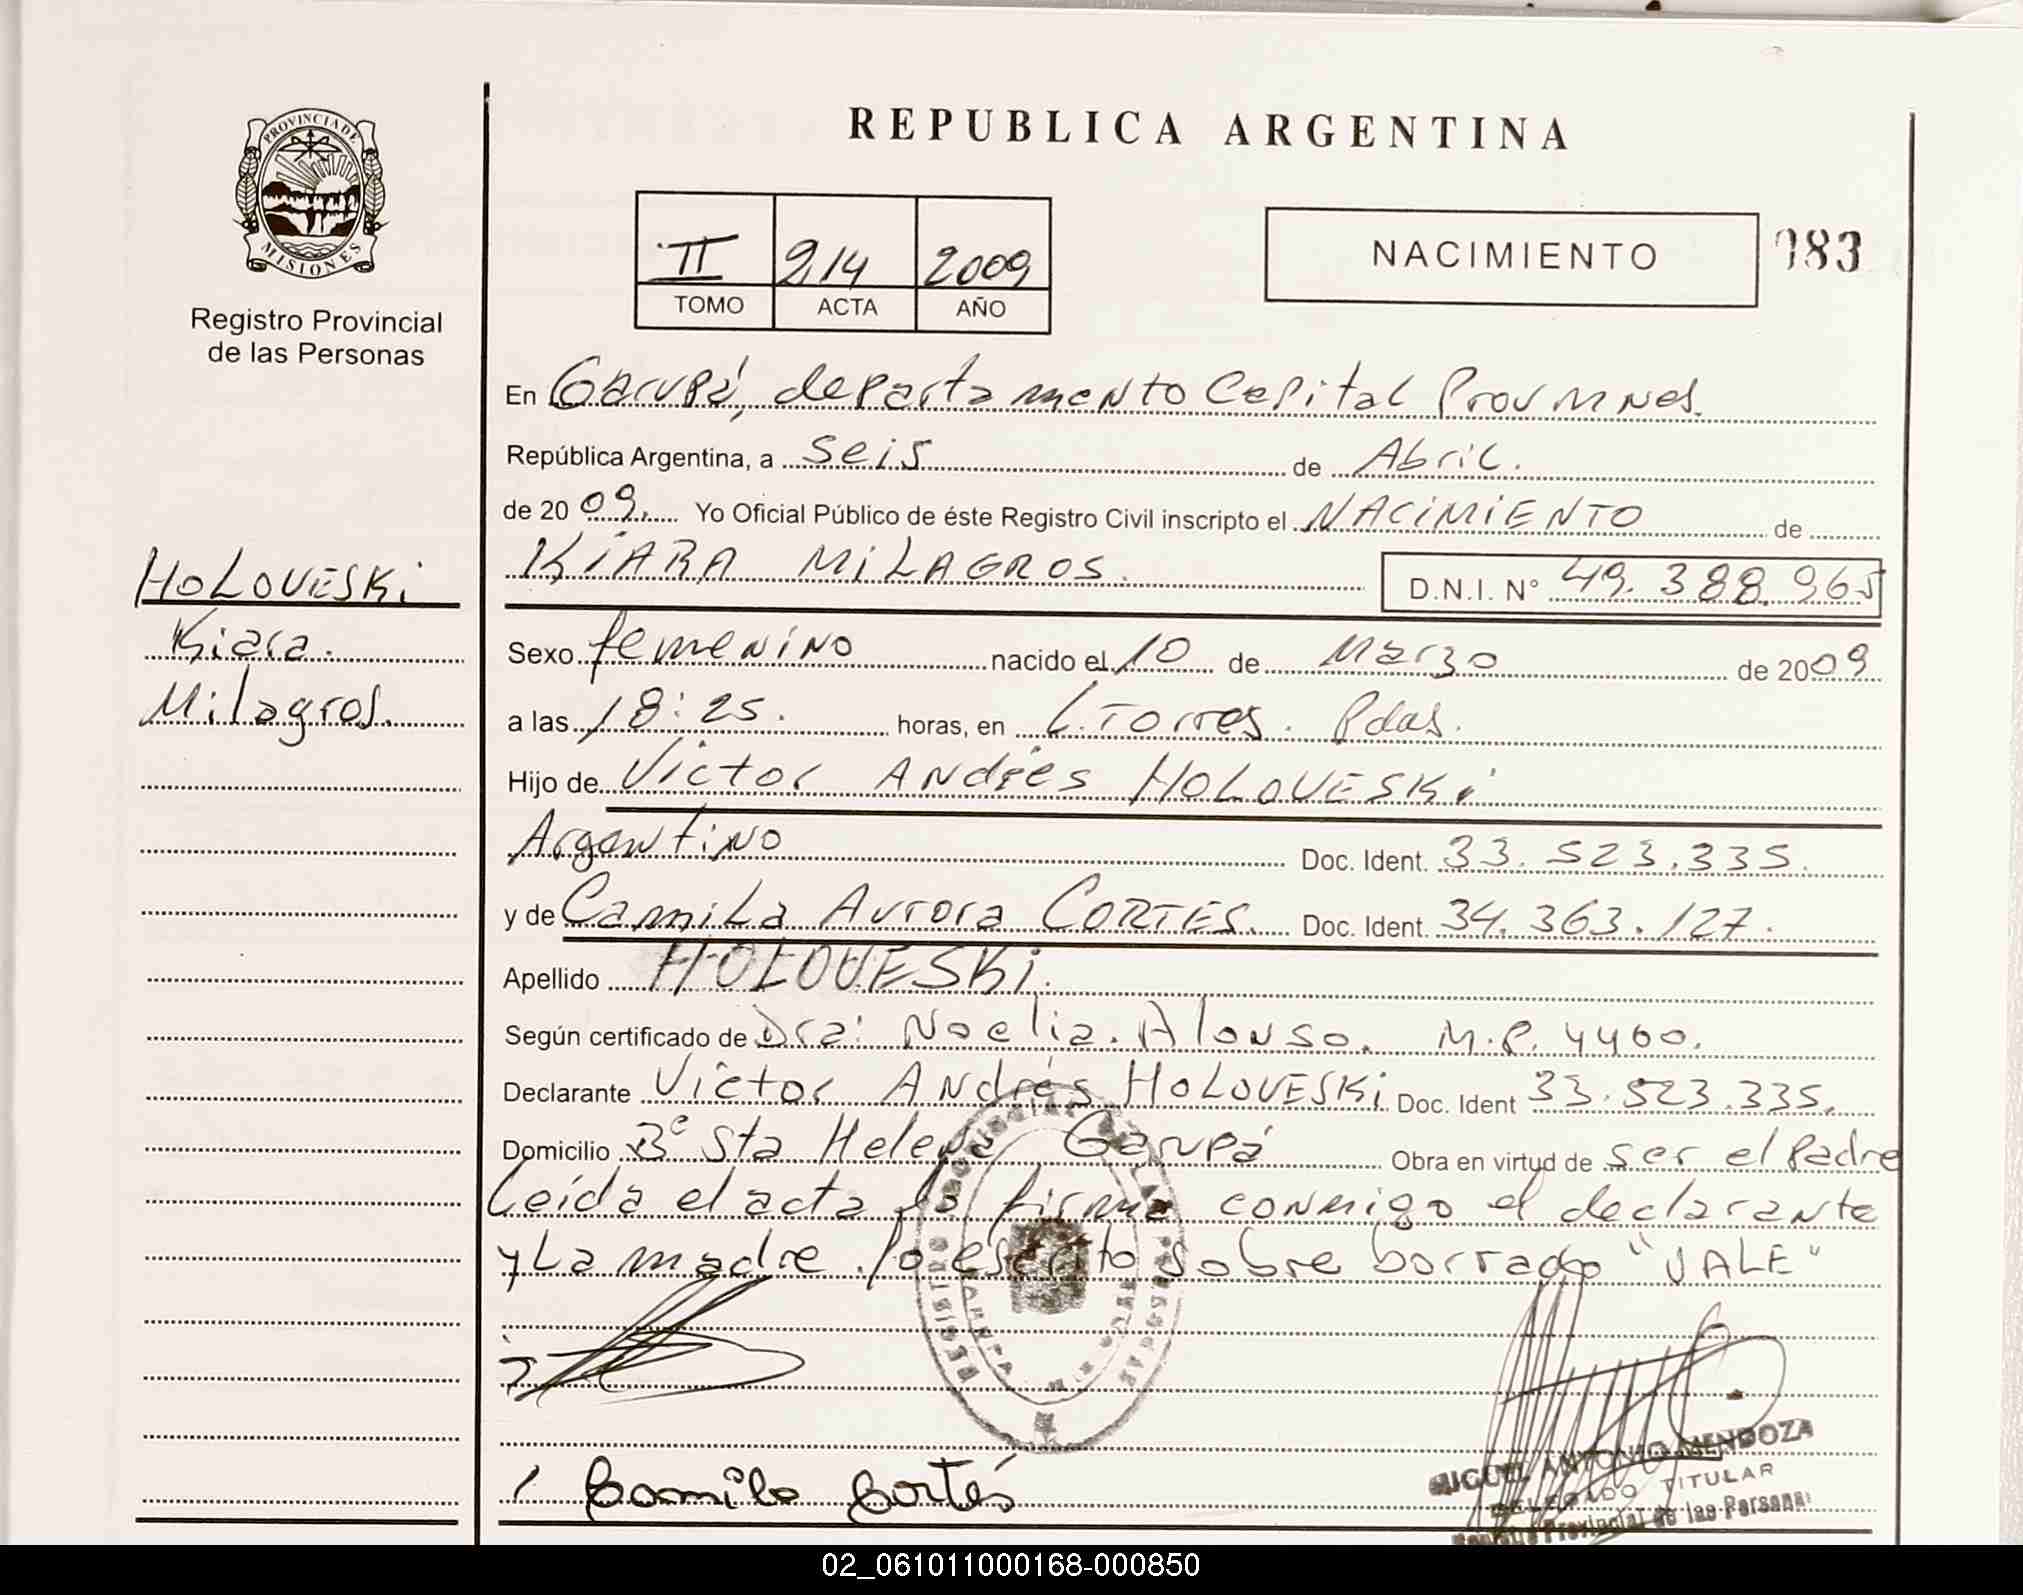 PROVINCIA DE
MISIONES
Registro Provincial
de las Personas
HOLOVESKi
Kiara.
Milagros.
REPUBLICA ARGENTINA
II 214 2009
TOMO ACTA AÑO
NACIMIENTO
983
En Garupá, departamento Capital Prov Mnes.
República Argentina, a seis de Abril.
de 2009. Yo Oficial Público de éste Registro Civil inscripto el NACiMiENTO de
KiARA MiLAGROS. D.N.I. N° 49.388.965
Sexo femenino nacido el 10 de Marzo de 2009
a las 18:25. horas, en L. Torres. Pdas.
Hijo de Victor Andrés HOLOVESKi
Argentino Doc. Ident. 33.523.335.
y de Camila Aurora CORTES. Doc. Ident. 34.363.127.
Apellido HOLOVESKi.
Según certificado de Dra: Noelia. Alonso. M.P. 4460.
Declarante Victor Andrés HOLOVESKi Doc. Ident 33.523.335.
Domicilio Bº Sta Helena Garupá Obra en virtud de ser el padre
Leída el acta la firma conmigo el declarante
y La madre. lo escrito sobre borrado "VALE"
Camila Cortés
MIGUEL ANTONIO MENDOZA
DELEGADO TITULAR
Registro Provincial de las Personas
02_061011000168-000850